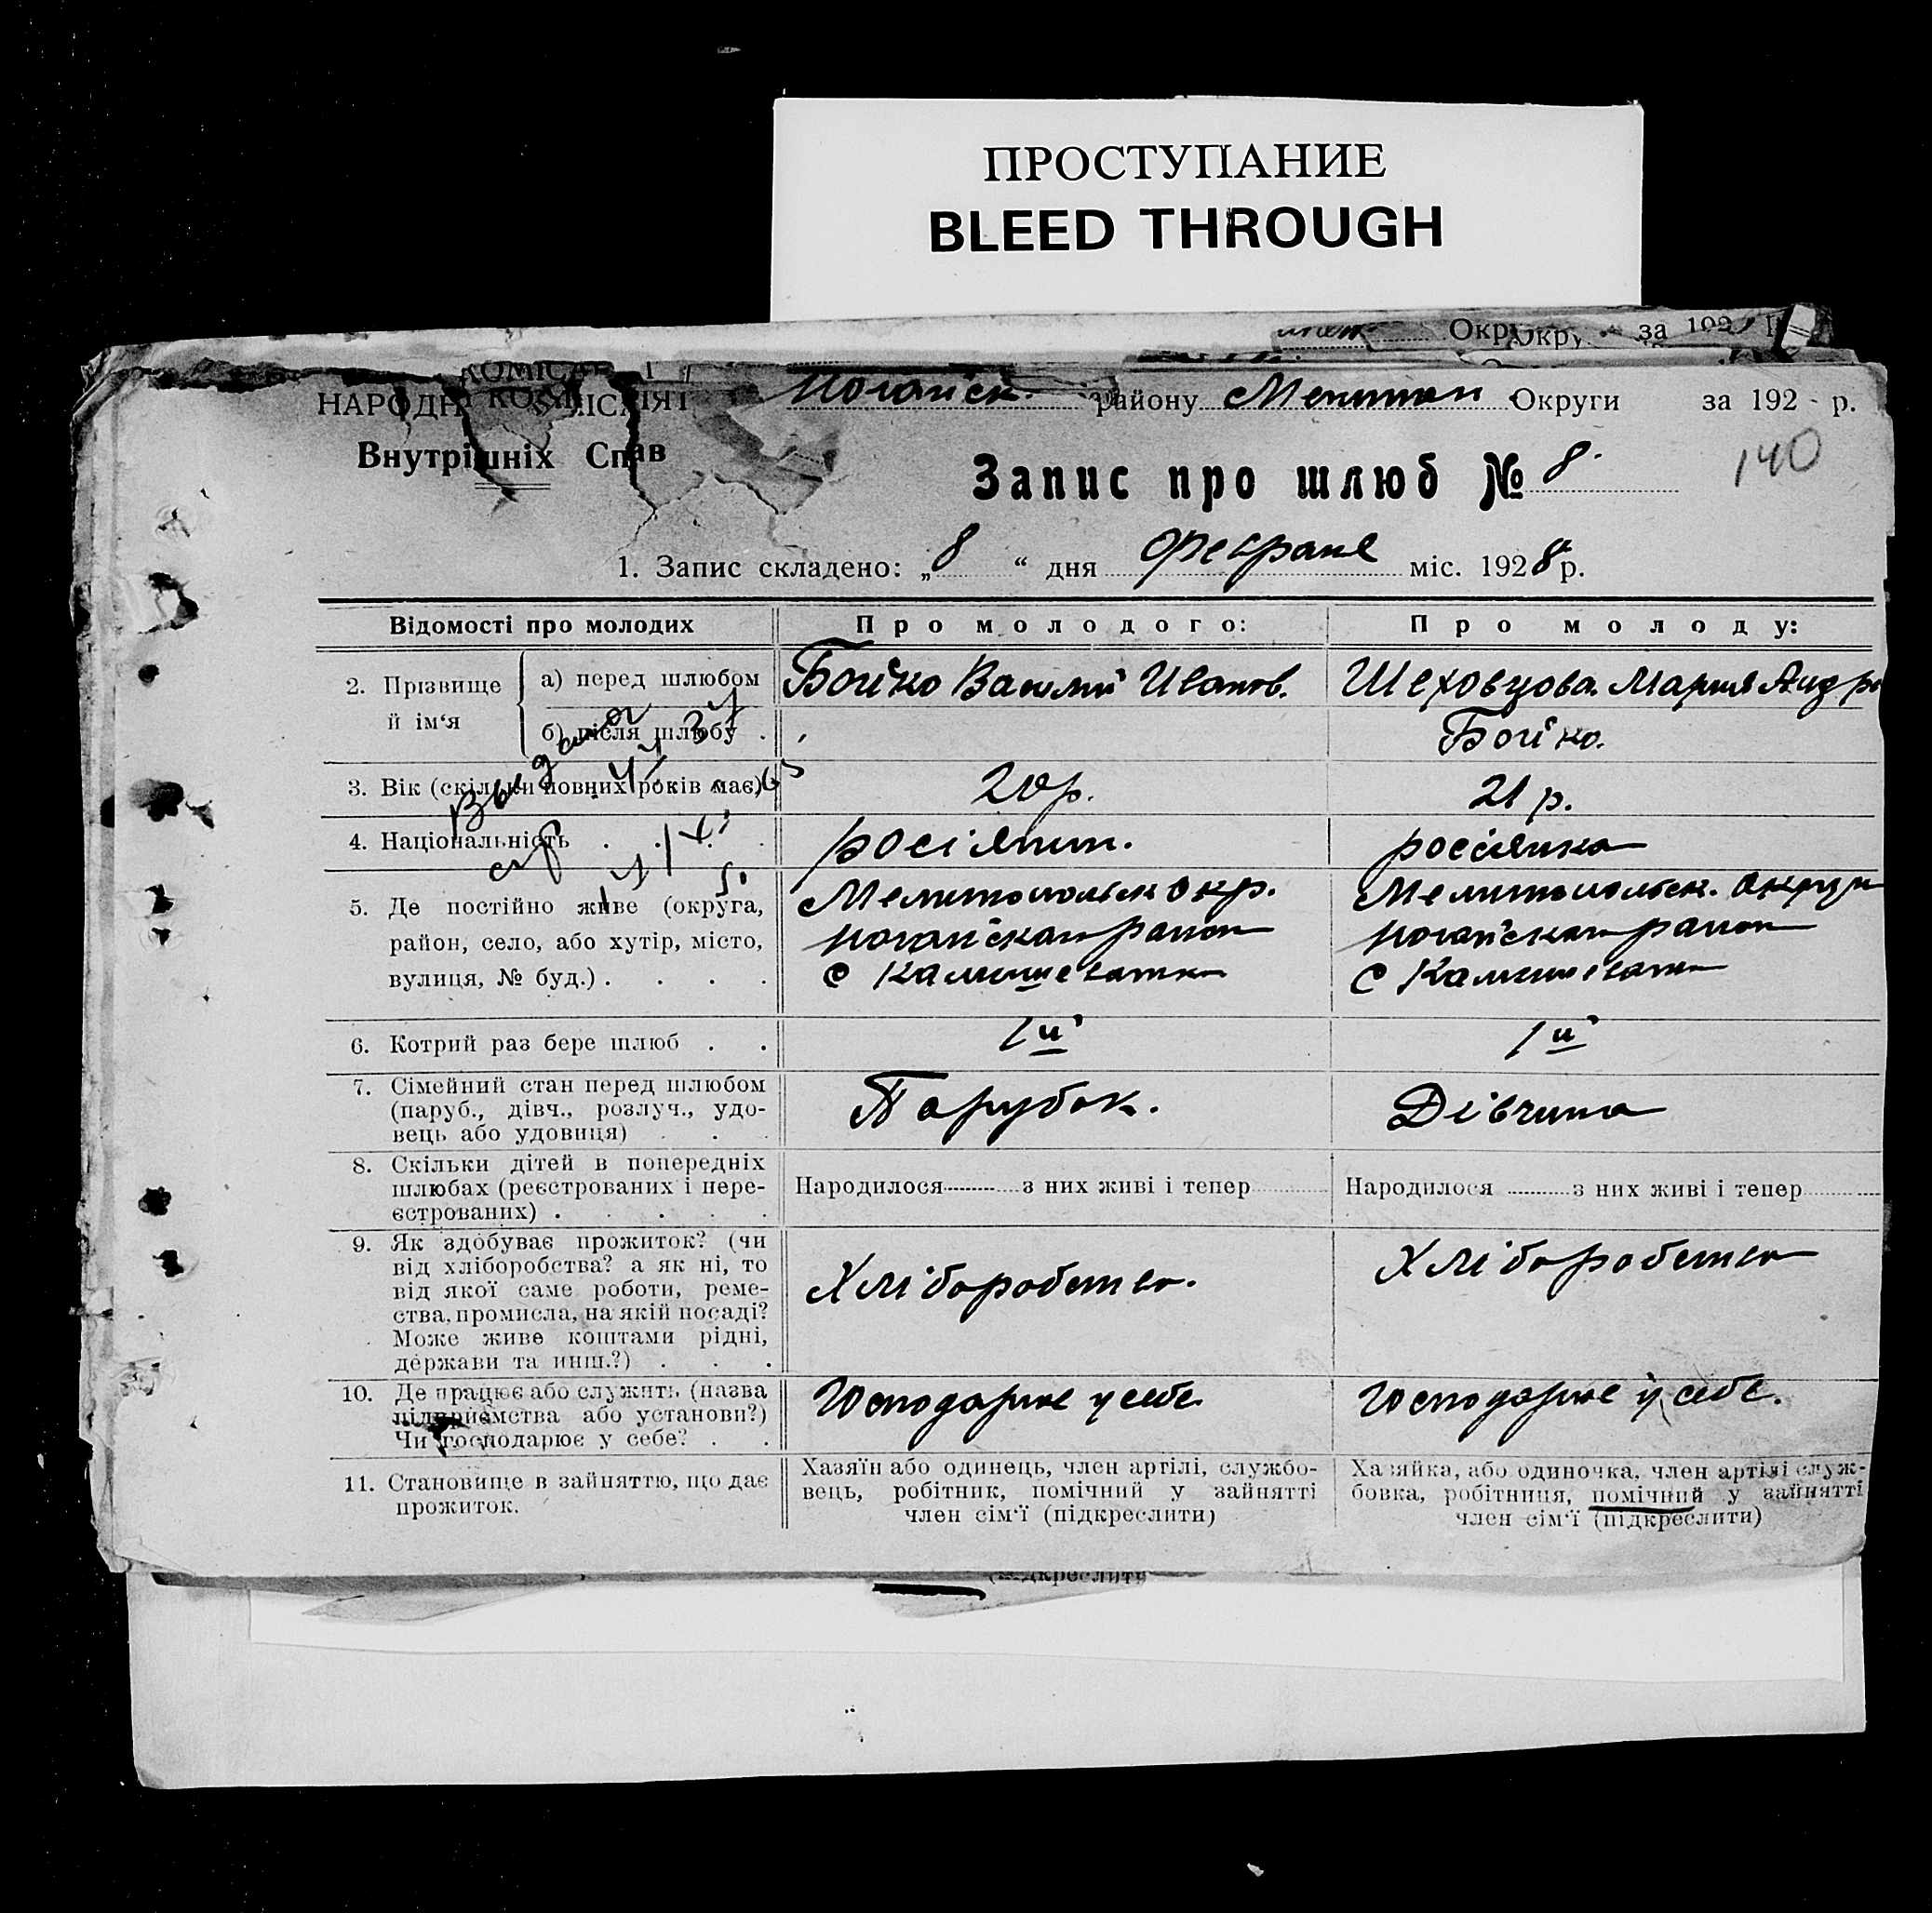 ПРОСТУПАНИЕ
BLEED THROUGH
Окр Окру за 192
НАРОДН КОМІСАРІЯТ Ногайськ. району Мелитоп Округи за 192 р.
Внутрішніх Справ
140
Запис про шлюб № 8.
1. Запис складено: „8“ дня Февраля міс. 1928 р.
Відомості про молодих Про молодого: Про молоду:
2. Прізвище й ім‘я
а) перед шлюбом Бойко Василий Иванов. Шеховцова Мария Андр
б) після шлюбу . Бойко.
3. Вік (скільки повних років має) 20 р. 21 р.
4. Національність . . . . росіянин. россіянка
5. Де постійно живе (округа, Мелитопольск окр. Мелитопольск. округи
район, село, або хутір, місто, Ногайская район Ногайская район
вулиця, № буд.) . . . . с Камишеватка с Камишеватка
6. Котрий раз бере шлюб . . 1й 1й
7. Сімейний стан перед шлюбом
(паруб., дівч., розлуч., удо- Парубок. Дівчина
вець або удовиця) . . .
8. Скільки дітей в попередніх
шлюбах (реєстрованих і нере- Народилося з них живі і тепер Народилося з них живі і тепер
єстрованих) . . . . .
9. Як здобуває прожиток? (чи
від хліборобства? а як ні, то Хліборобство. Хліборобство
від якої саме роботи, реме-
ства, промисла, на якій посаді?
Може живе коштами рідні,
держави та инш.?) . . .
10. Де працює або служить (назва Господарює у себе Господарює у себе.
підприємства або установи?)
Чи господарює у себе? . .
11. Становище в зайняттю, що дає
прожиток.
Хазяїн або одинець, член артілі, службо-
вець, робітник, помічний у зайнятті
член сім‘ї (підкреслити)
Хазяйка, або одиночка, член артілі служ-
бовка, робітниця, помічний у зайнятті
член сім‘ї (підкреслити)
Выдано
(підкреслити